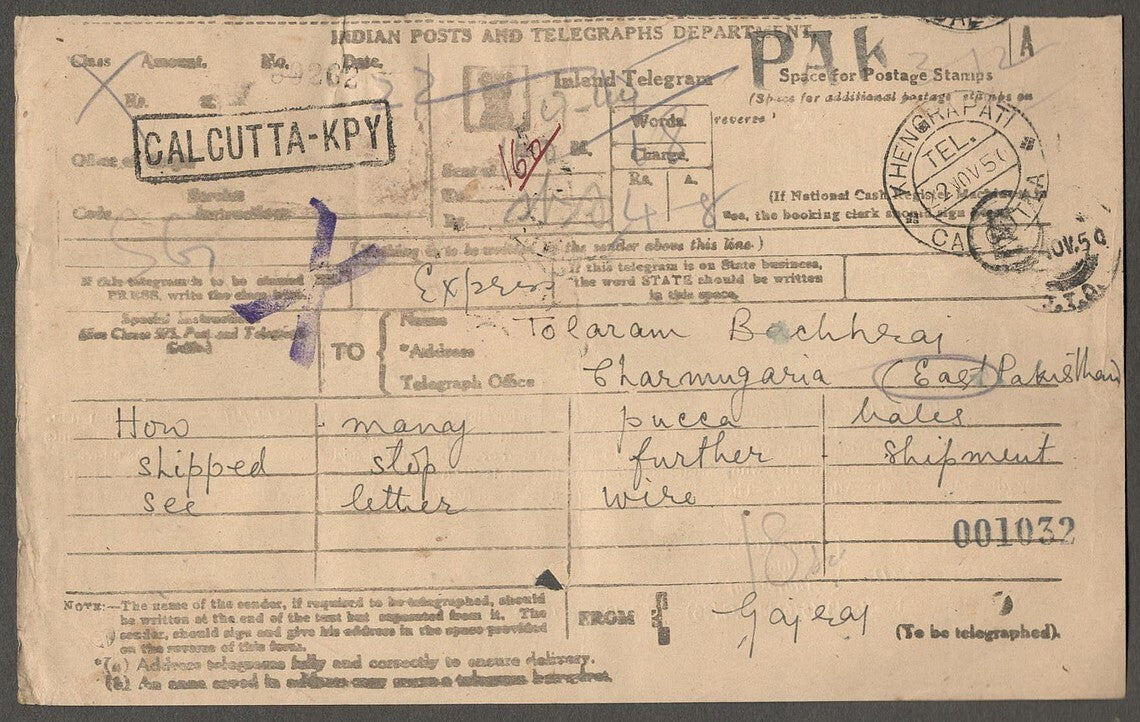 INDIAN POSTS AND TELEGRAPHS DEPARTMENT
PAK
A
Class Amount. No. Date.
Inland Telegram
Space for Postage Stamps
(Space for additional postage stamps on reverse
Rs.
CALCUTTA-KPY
Words.
18
Charge.
Rs. A.
Sent at M.
To
By
4 8
162
Office of
Service Instructions
Code
(If National Cash Register Machine is
use, the booking clerk should sign
TEL.
22 NOV 50
NOV.50
(Nothing is to be written by the sender above this line.)
If this telegram is to be classed PRESS, write the class here.
Express
If this telegram is on State business, the word STATE should be written in this space.
Special Instructions
(See Clause 575, Post and Telegraph Guide.)
TO
Name
Tolaram Bachhraj
*Address
Telegraph Office
Charmugaria (East Pakisthan)
How many pucca bales
shipped stop further shipment
see letter wire
001032
18
NOTE:—The name of the sender, if required to be telegraphed, should
be written at the end of the text but separated from it. The
sender, should sign and give his address in the space provided
on the reverse of this form.
FROM
Gajraj
(To be telegraphed).
*(a) Address telegrams fully and correctly to ensure delivery.
(b) An